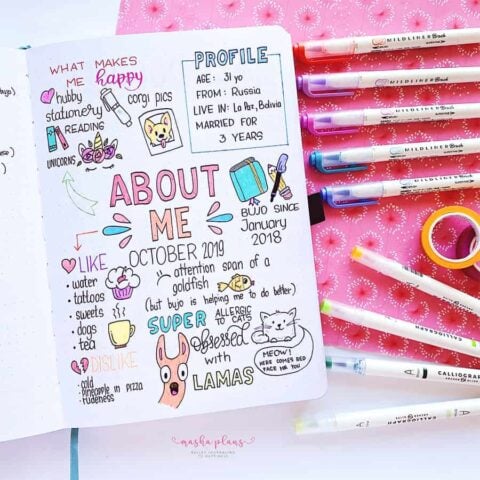 WHAT MAKES
ME happy
hubby
stationery
corgi pics
READING
UNICORNS
PROFILE
AGE: 31 yo
FROM: Russia
LIVE IN: La Paz, Bolivia
MARRIED FOR
3 YEARS
ABOUT
ME
BUJO SINCE
January
2018
OCTOBER 2019
LIKE
• water
• tattoos
• sweets
• dogs
• tea
attention span of a
goldfish
(but bujo is helping me to do better)
SUPER ALLERGIC
TO CATS
Obsessed
with
LAMAS
MEOW!
HERE COMES RED
FACE FOR YOU
DISLIKE
• cold
• pineapple in pizza
• rudeness
MILDLINER Brush
MILDLINER Brush
MILDLINER Brush
MILDLINER Brush
MILDLINER Brush
CALLIGRAPH
CALLIGRAPH
masha plans
BULLET JOURNALING
TO HAPPINESS